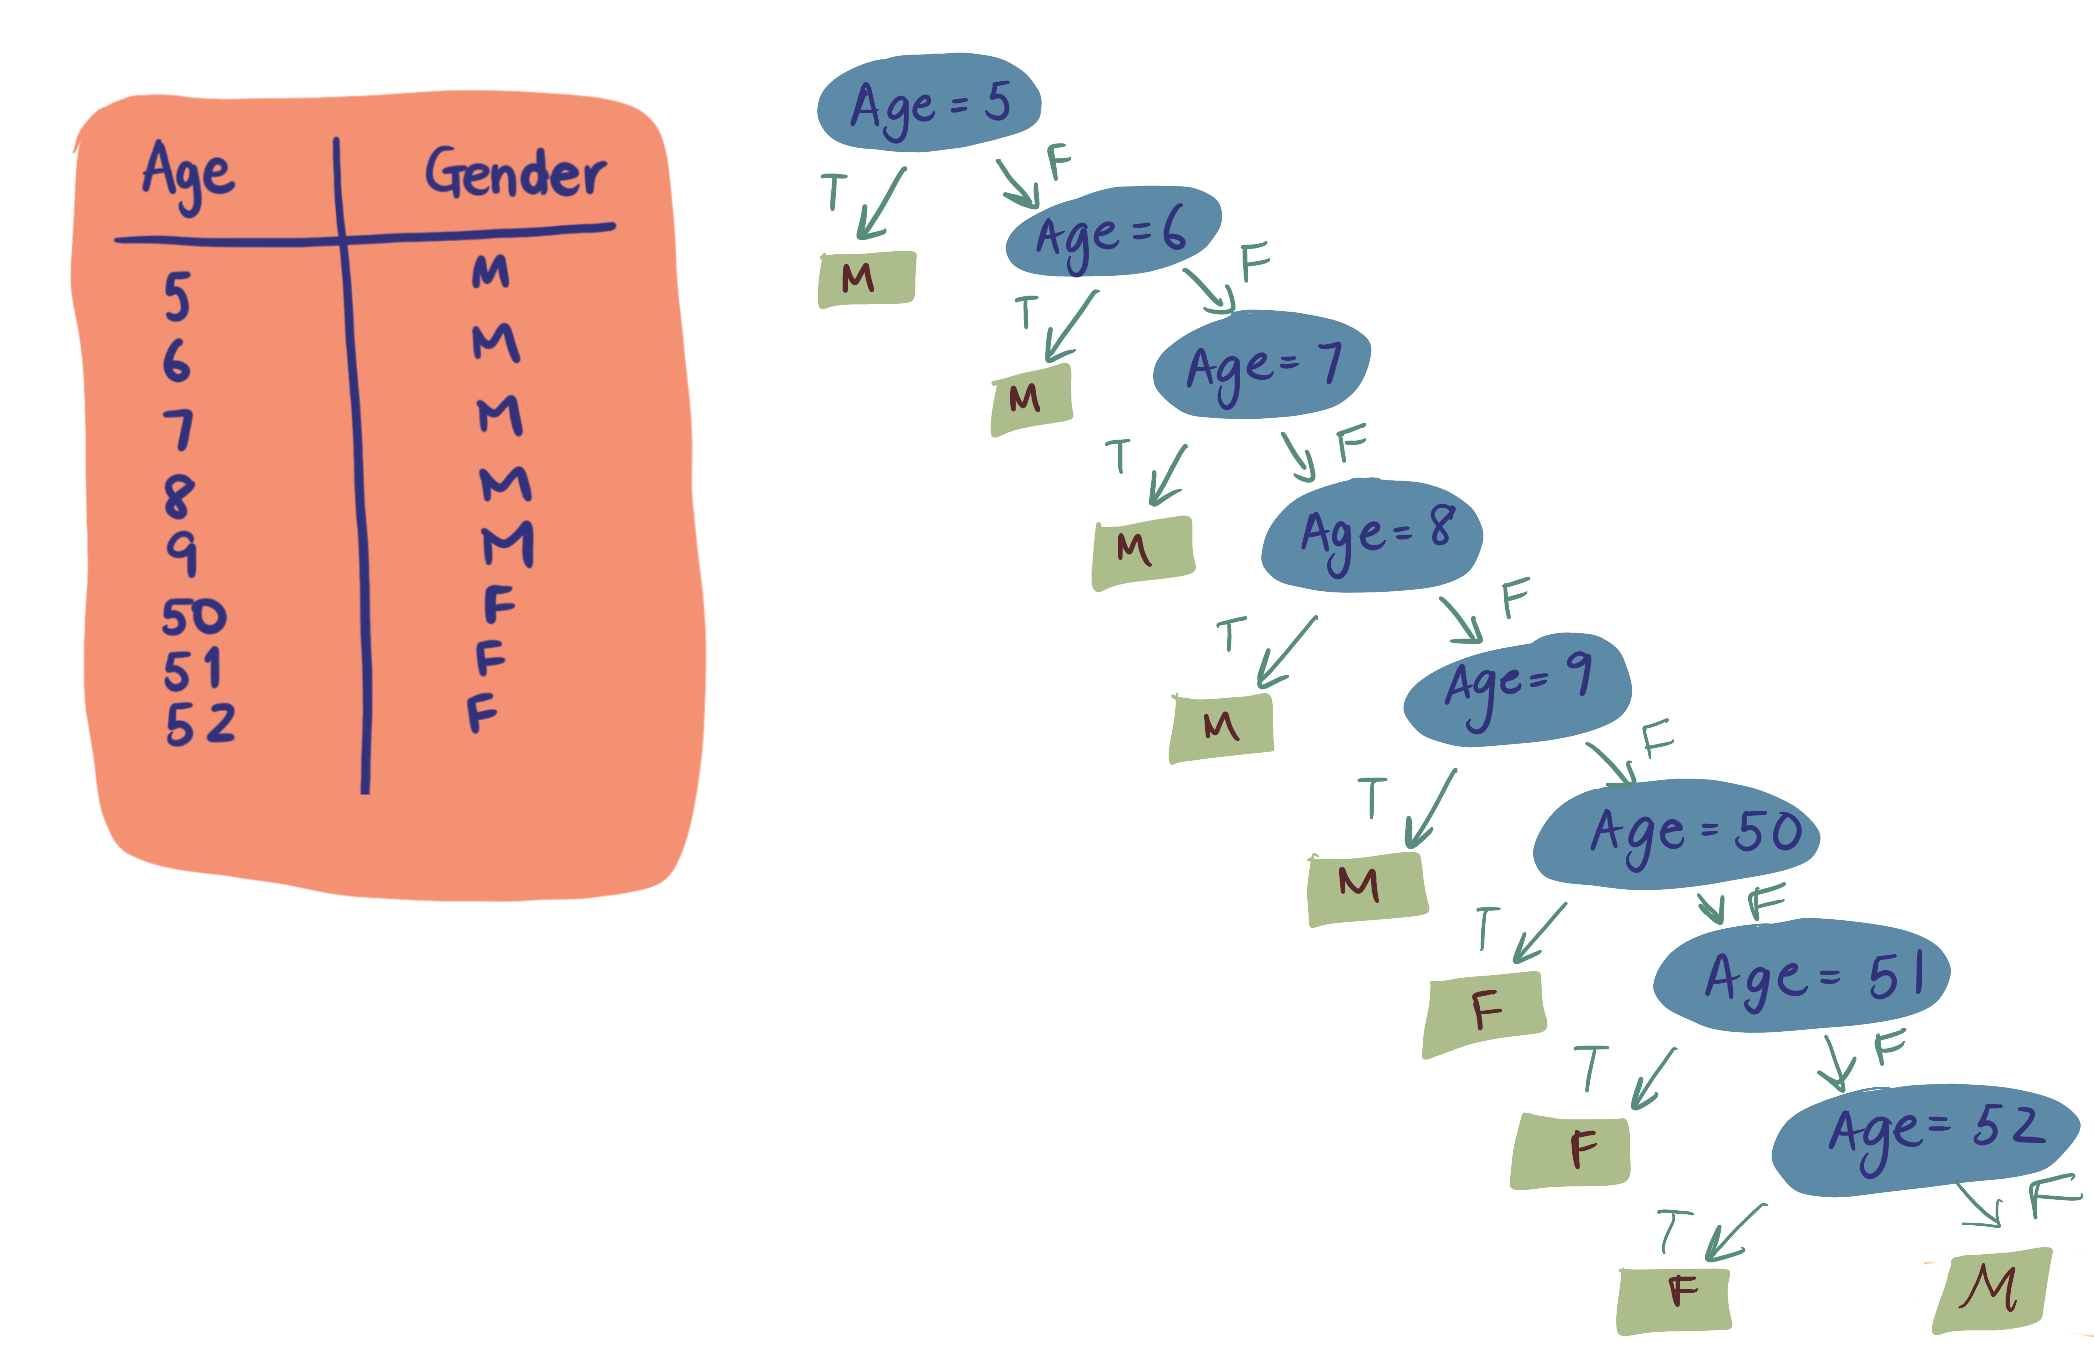 Age Gender
5 M
6 M
7 M
8 M
9 M
50 F
51 F
52 F
Age = 5
T F
M
Age = 6
T F
M
Age = 7
T F
M
Age = 8
T F
M
Age = 9
T F
M
Age = 50
T F
F
Age = 51
T F
F
Age = 52
T F
F M